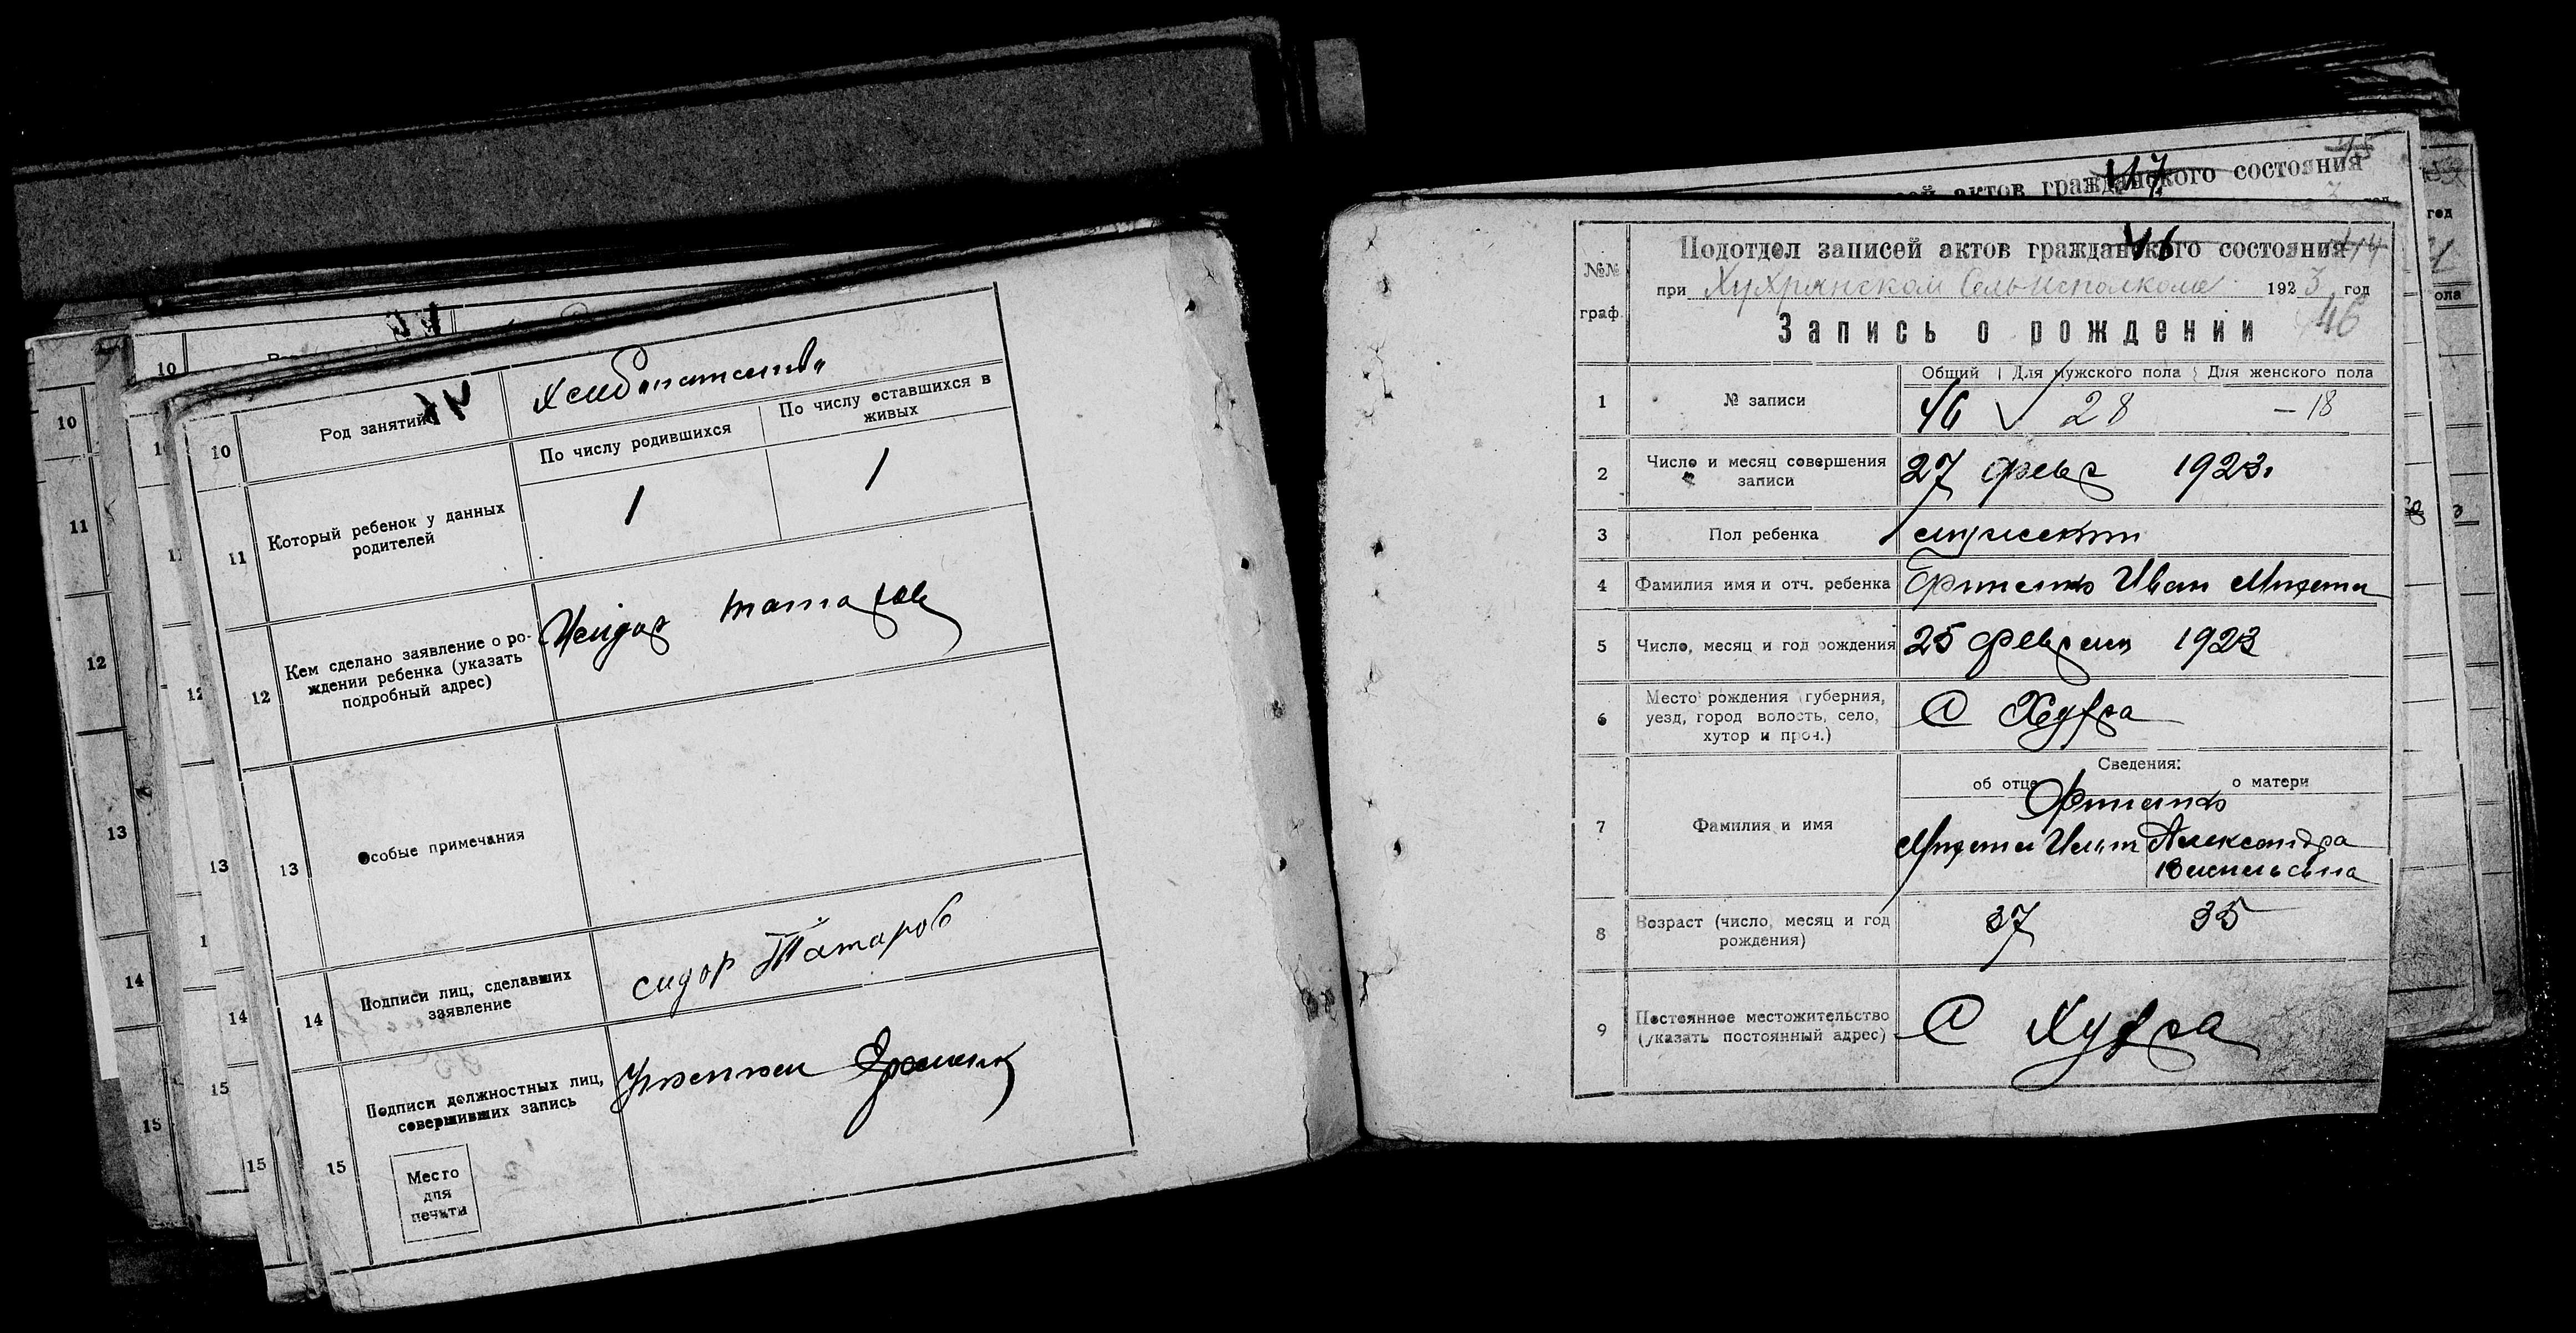 10
Род занятий
Хлебопашество
11
Который ребенок у данных
родителей
По числу родившихся
По числу оставшихся в
живых
1
1
12
Кем сделано заявление о ро-
ждении ребенка (указать
подробный адрес)
Исидор Татаров
13
Особые примечания
14
Подписи лиц, сделавших
заявление
сидор Татаров
15
Подписи должностных лиц,
совершивших запись
Место
для
печати
10
11
12
13
14
15
10
12
13
14
15
15
47
актов гражданского состояния
год
ола
№№
граф.
Подотдел записей актов гражданского состояния
46
при Хухрянском Сельисполкоме 1923 год
Запись о рождении
46
1
№ записи
Общий Для мужского пола Для женского пола
46 28 – 18
2
Число и месяц совершения
записи
27 февр 1923.
3
Пол ребенка
мужской
4
Фамилия имя и отч. ребенка
Иван
5
Число, месяц и год рождения
25 февраля 1923
6
Место рождения (губерния,
уезд, город волость, село,
хутор и проч.)
С Хухра
7
Фамилия и имя
Сведения:
об отце
о матери
Александра
Васильевна
8
Возраст (число, месяц и год
рождения)
37 35
9
Постоянное местожительство
(указать постоянный адрес)
С Хухра